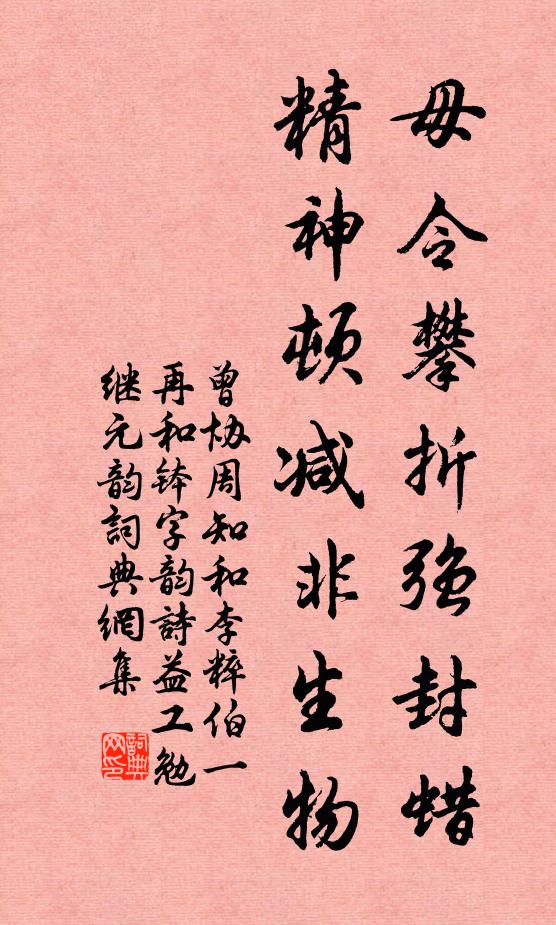 毋令攀折强封蜡
精神顿减非生物
曾协周知和李粹伯一
再和钵字韵詩益工勉
继元韵詞典網集
詞典网印